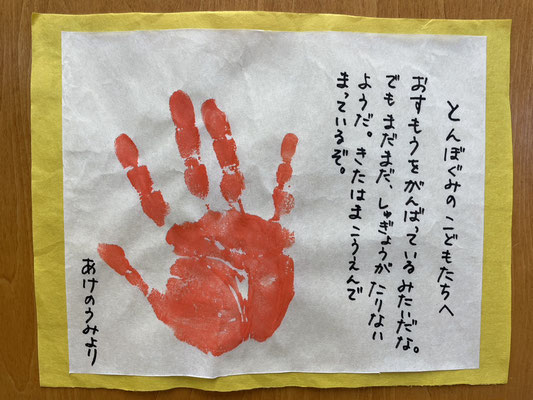 とんぼぐみの こどもたちへ
おすもうを がんばっている みたいだな。
でも まだまだ、しゅぎょうが たりない
ようだ。きたはま こうえんで
まっているぞ。
あけのうみより